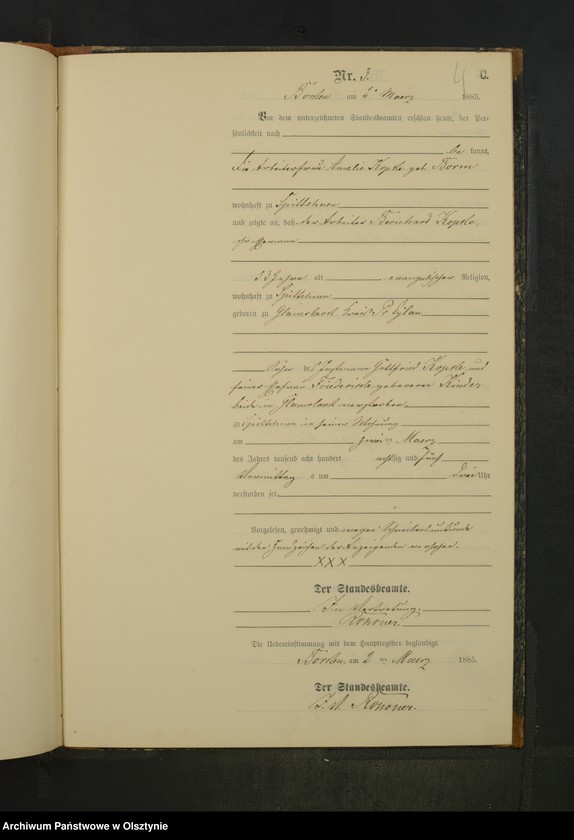 Nr. 3. 4 C.
am 2 Maerz 1885.
Vor dem unterzeichneten Standesbeamten erschien heute, der Per-
sönlichkeit nach
be kannt,
die Arbeiterfrau Amalie Kopke geb.
wohnhaft zu Spittehnen
und zeigte an, daß der Arbeiter Bernhard Kopke
ihr Ehemann
33 Jahre alt evangelischer Religion,
wohnhaft zu Spittehnen
geboren zu Kreis Pr Eylau
Sohn des Gottfried Kopke und
seiner Ehefrau Friedericke geborenen
beide in verstorben.
zu Spittehnen in seiner Wohnung
am zwei ten Maerz
des Jahres tausend acht hundert achtzig und fünf
Vormittag s um drei Uhr
verstorben sei
Vorgelesen, genehmigt und wegen Schreibensunkunde
mit den Handzeichen der Anzeigenden versehen.
XXX
Der Standesbeamte.
In Vertretung.
Die Uebereinstimmung mit dem Hauptregister beglaubigt.
am 2 ten Maerz 1885.
Der Standesbeamte.
Archiwum Państwowe w Olsztynie